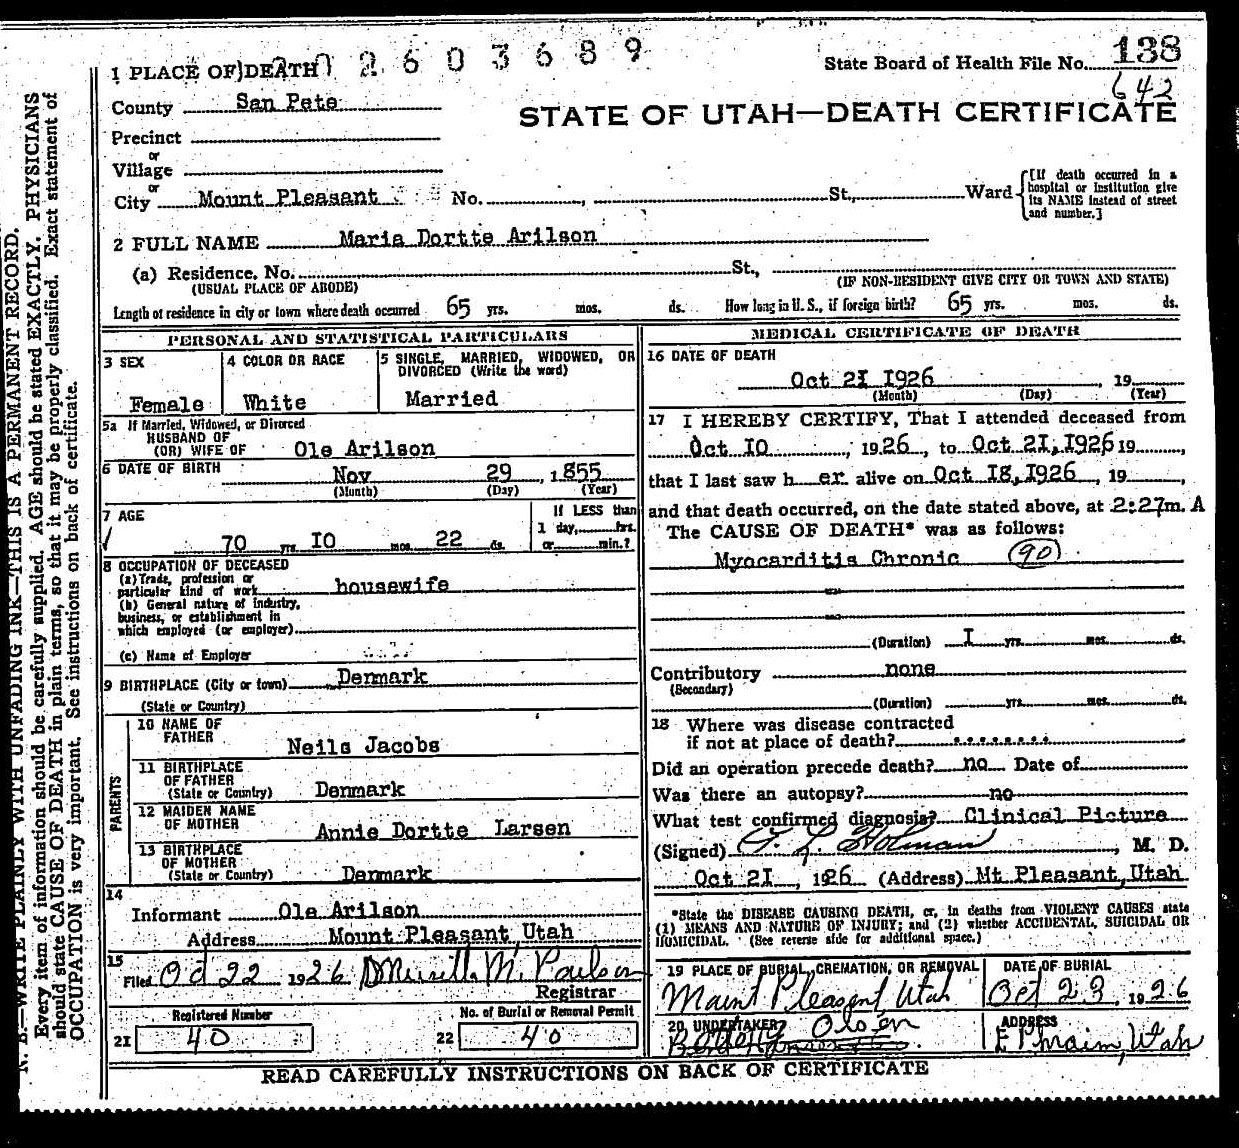 2603689
1 PLACE OF DEATH
State Board of Health File No. 138
642
County San Pete
STATE OF UTAH—DEATH CERTIFICATE
Precinct
or
Village
or
City Mount Pleasant No. , St., Ward
[If death occurred in a
hospital or institution give
its NAME instead of street
and number.]
2 FULL NAME Maria Dortte Arilson
(a) Residence, No. St.,
(USUAL PLACE OF ABODE) (IF NON-RESIDENT GIVE CITY OR TOWN AND STATE)
Length of residence in city or town where death occurred 65 yrs. mos. ds. How long in U. S., if foreign birth? 65 yrs. mos. ds.
PERSONAL AND STATISTICAL PARTICULARS
3 SEX
Female
4 COLOR OR RACE
White
5 SINGLE, MARRIED, WIDOWED, OR
DIVORCED (Write the word)
Married
5a If Married, Widowed, or Divorced
HUSBAND OF
(OR) WIFE OF Ole Arilson
6 DATE OF BIRTH Nov 29 , 1855
(Month) (Day) (Year)
7 AGE
70 yrs. I0 mos. 22 ds.
If LESS than
1 day, hrs.
or min.?
8 OCCUPATION OF DECEASED
(a) Trade, profession or
particular kind of work housewife
(b) General nature of industry,
business, or establishment in
which employed (or employer)
(c) Name of Employer
9 BIRTHPLACE (City or town) Denmark
(State or Country)
PARENTS
10 NAME OF
FATHER Neils Jacobs
11 BIRTHPLACE
OF FATHER
(State or Country) Denmark
12 MAIDEN NAME
OF MOTHER Annie Dortte Larsen
13 BIRTHPLACE
OF MOTHER
(State or Country) Denmark
14
Informant Ole Arilson
Address Mount Pleasant, Utah
15
Filed Oct 22 1926 M. Paulson
Registrar
Registered Number
21 40
No. of Burial or Removal Permit
22 40
MEDICAL CERTIFICATE OF DEATH
16 DATE OF DEATH
Oct 2I I926 , 19
(Month) (Day) (Year)
17 I HEREBY CERTIFY, That I attended deceased from
Oct I0 , 1926, to Oct 2I, I926 19 ,
that I last saw h er alive on Oct I8, I926 , 19 ,
and that death occurred, on the date stated above, at 2:27m. A
The CAUSE OF DEATH* was as follows:
Myocarditis Chronic (90)
(Duration) I yrs. mos. ds.
Contributory none
(Secondary)
(Duration) yrs. mos. ds.
18 Where was disease contracted
if not at place of death? ........
Did an operation precede death? no Date of
Was there an autopsy? no
What test confirmed diagnosis? Clinical Picture
(Signed) L Holman , M. D.
Oct 2I , 1926 (Address) Mt Pleasant, Utah
*State the DISEASE CAUSING DEATH, or, in deaths from VIOLENT CAUSES state
(1) MEANS AND NATURE OF INJURY; and (2) whether ACCIDENTAL, SUICIDAL OR
HOMICIDAL. (See reverse side for additional space.)
19 PLACE OF BURIAL, CREMATION, OR REMOVAL
Mount Pleasant, Utah
DATE OF BURIAL
Oct 23 , 1926
20 UNDERTAKER Olsen
ADDRESS
Ephraim, Utah
READ CAREFULLY INSTRUCTIONS ON BACK OF CERTIFICATE
N. B.—WRITE PLAINLY WITH UNFADING INK—THIS IS A PERMANENT RECORD.
Every item of information should be carefully supplied. AGE should be stated EXACTLY. PHYSICIANS
should state CAUSE OF DEATH in plain terms, so that it may be properly classified. Exact statement of
OCCUPATION is very important. See instructions on back of certificate.